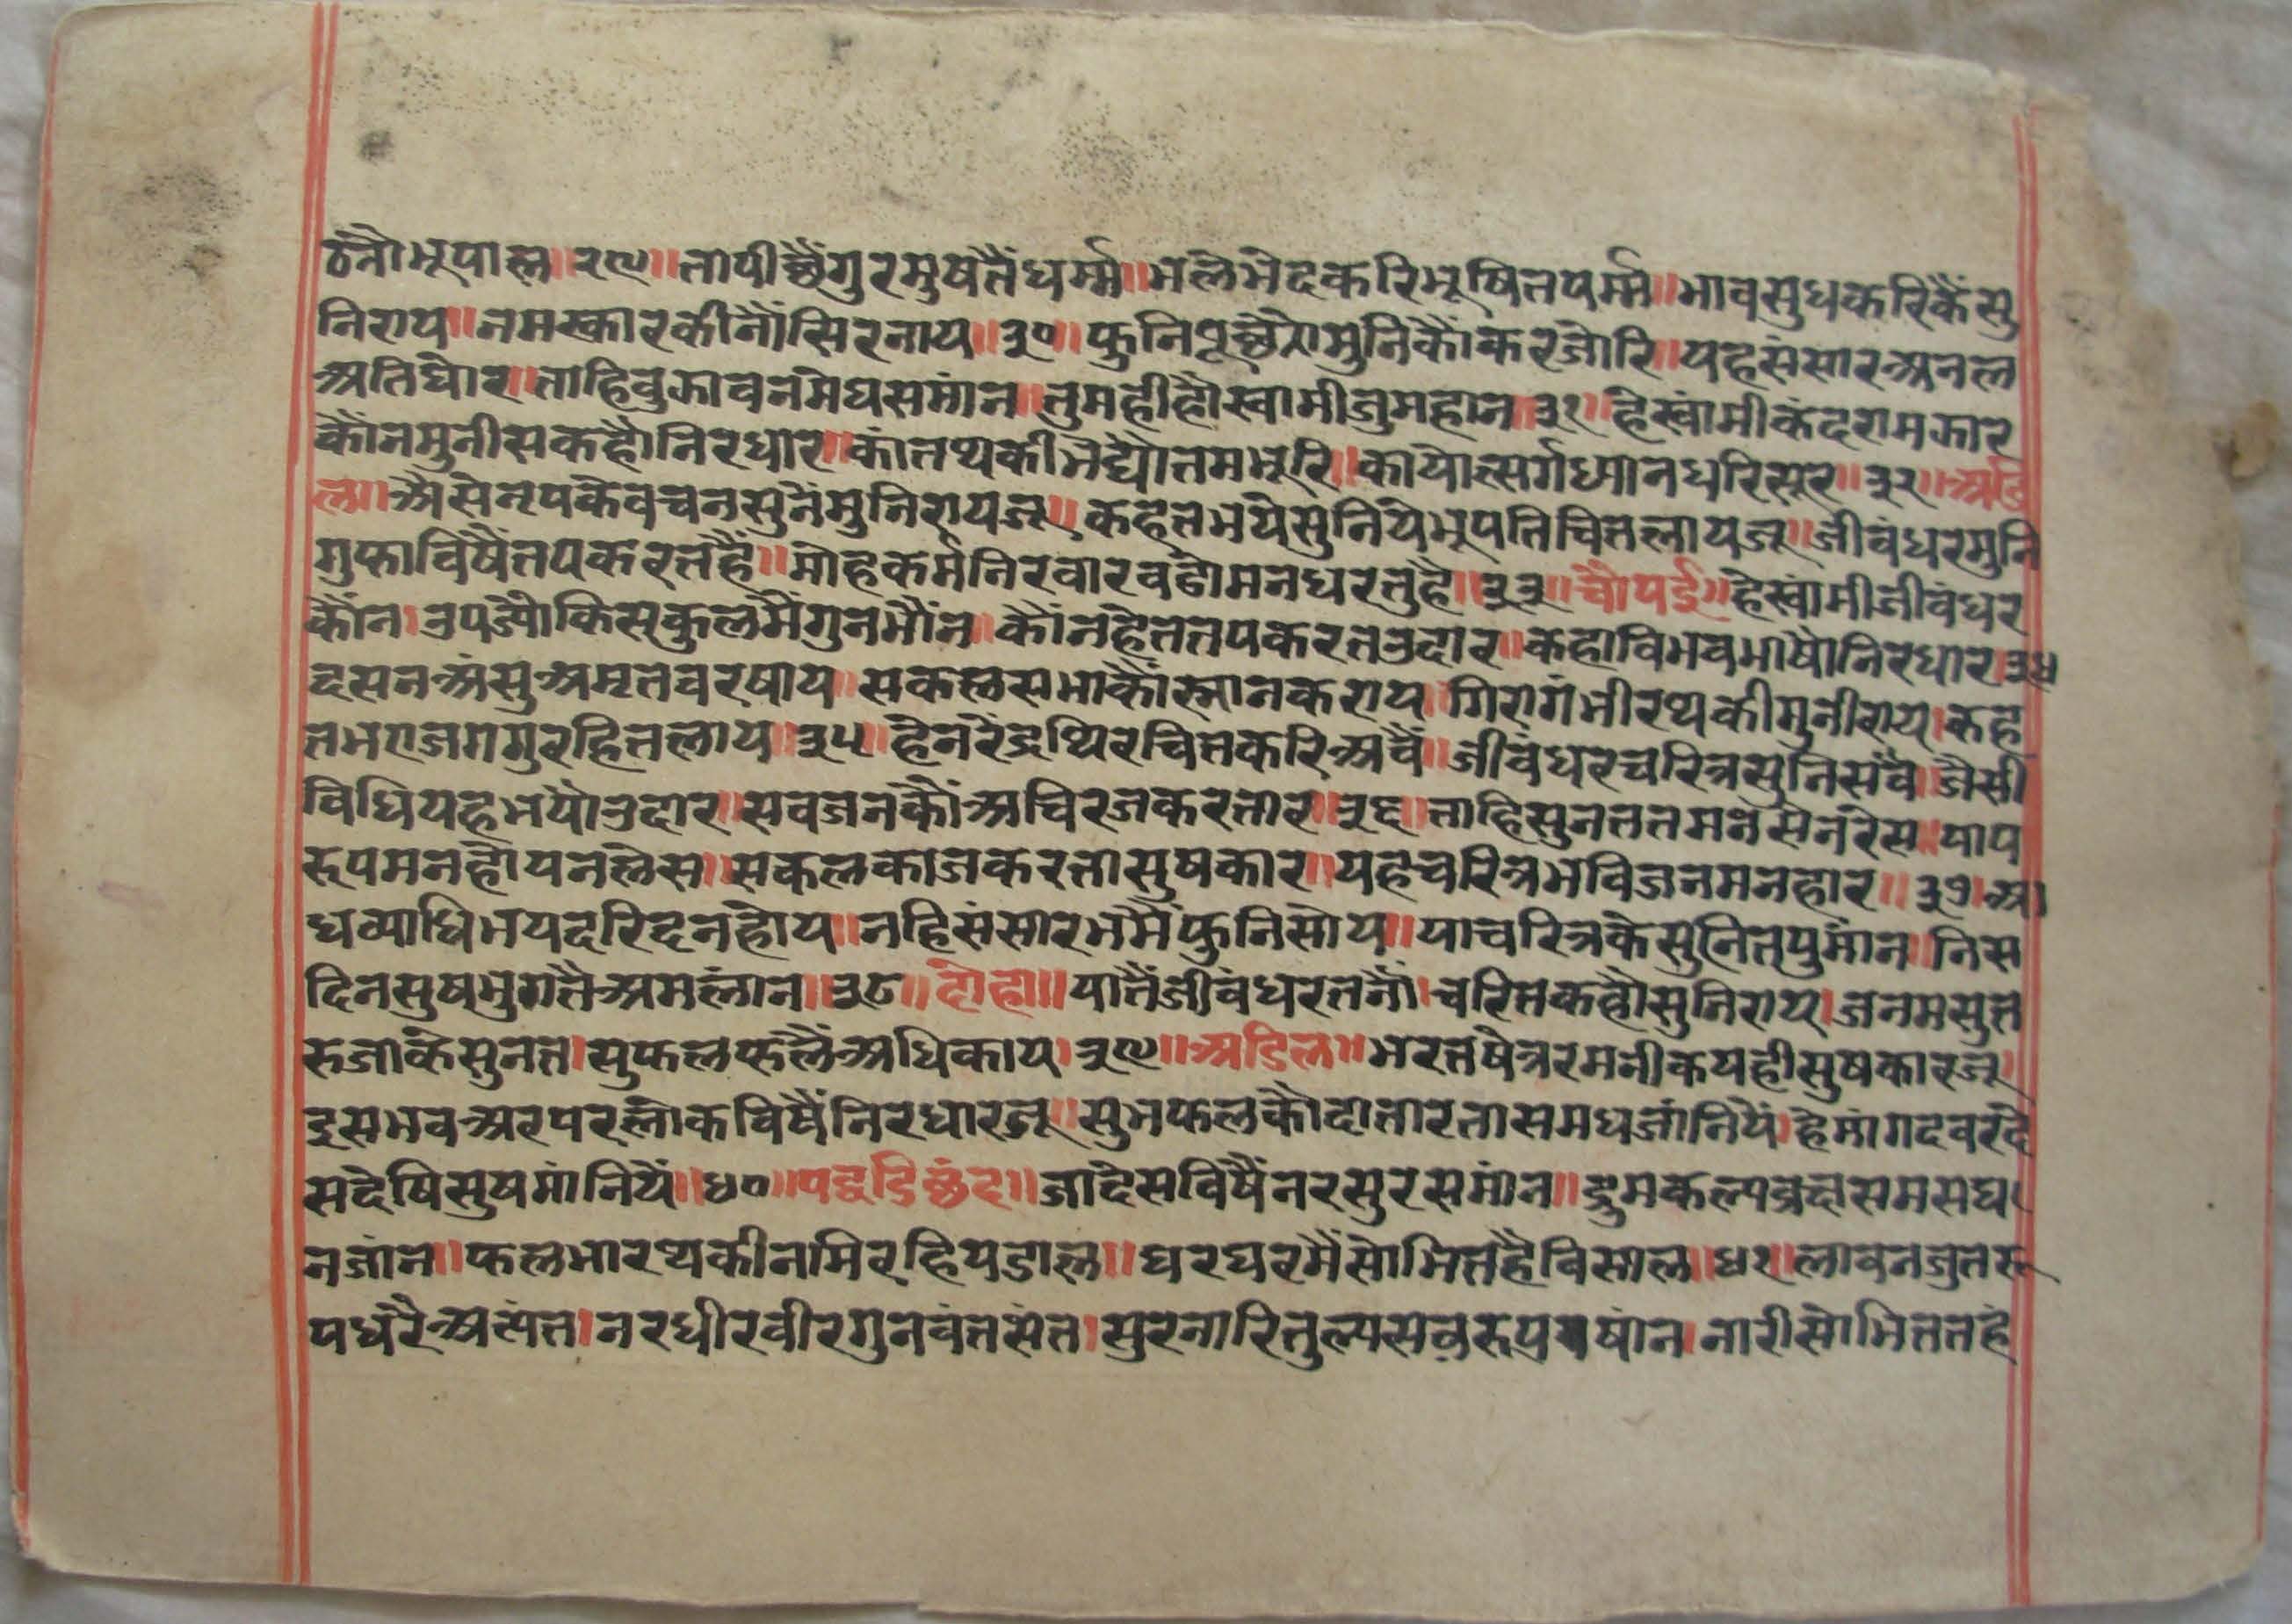 ठनौ भूपाल॥२९॥ता पीछैं गुर मुषतैं धर्म्म॥भले भेद करि भूषित पर्म्म॥भाव सुध करिकैं सु
निराय॥नमस्कार कीनौं सिर नाय॥३०॥फुनि पूछै मुनिकौं कर जोरि॥यह संसार अनल
अति घोर॥ताहि वुझावन मेघ समांन॥तुमही हौ स्वामी जु महान॥३१॥हे स्वांमी कंदरा मझार
कौंन मुनीस कहौ निरधार॥कांत थकी भेद्यौ तम भूरि॥कायोत्सर्ग ध्यान धरि सूर॥३२॥अडि
ल॥अैसे नृपके वचन सुनैं मुनिरायजू॥कहत भये सुनिये भूपति चित लायजू॥जीवंधर मुनि
गुफा विषैं तप करत हैं॥मोह कर्म निरवार वडो मन धरतु है॥३३॥चौपई॥हे स्वांमी जीवंधर
कौंन।उपज्यौ किस कुलमैं गुन भौंन॥कौंन हेत तप करत उदार॥कहा विभव भाषौ निरधार।३४
दसन अंसु अमृत वरषाय॥सकल सभाकौं स्नान कराय।गिरा गंभीर थकी मुनीराय।कह
त भए जगगुर हित लाय॥३५॥हे नरेंद्र थिर चित करि अवैं॥जीवंधर चरित्र सुनि सवैं।जैसी
विधि यह भयौ उदार॥सव जनकौं अचिरज करतार॥३६॥ताहि सुनत तमनसे नरेस॥पाप
रूप मन होय न लेस॥सकल काज करता सुषकार॥यह चरित्र भविजन मनहार॥३७।आ
ध व्याधि भय दरिद न होय॥नहि संसार भमैं फुनि सोय॥या चरित्रके सुनित पुमांन॥निस
दिन सुष भुगतै अमलांन॥३८॥दोहा॥यातैं जीवंधर तनौं।चरित कहौं सुनि राय।जनम सुत
रु जाके सुनत।सुफल फलैं अधिकाय।३९॥अडिल॥भरत षेत्र रमनीक यही सुषकारजू॥
इस भव अर परलोक विषैं निरधारजू॥सुभ फलकौ दातार तास मध जांनियैं।हेमांगद वर दे
स देषि सुष मांनियैं॥४०॥पद्धडि छंद॥जा देस विषैं नर सुर समांन॥द्रुम कल्पव्रछ सम सघ
न जांन॥फल भार थकी नमि रहिय डाल॥घर घरमैं सोभित है विसाल॥४१॥लावन जुत रू
प धरै अत्यंत।नर धीर वीर गुनवंत संत।सुर नारि तुल्य सव रूप षांन।नारी सोभित तहं